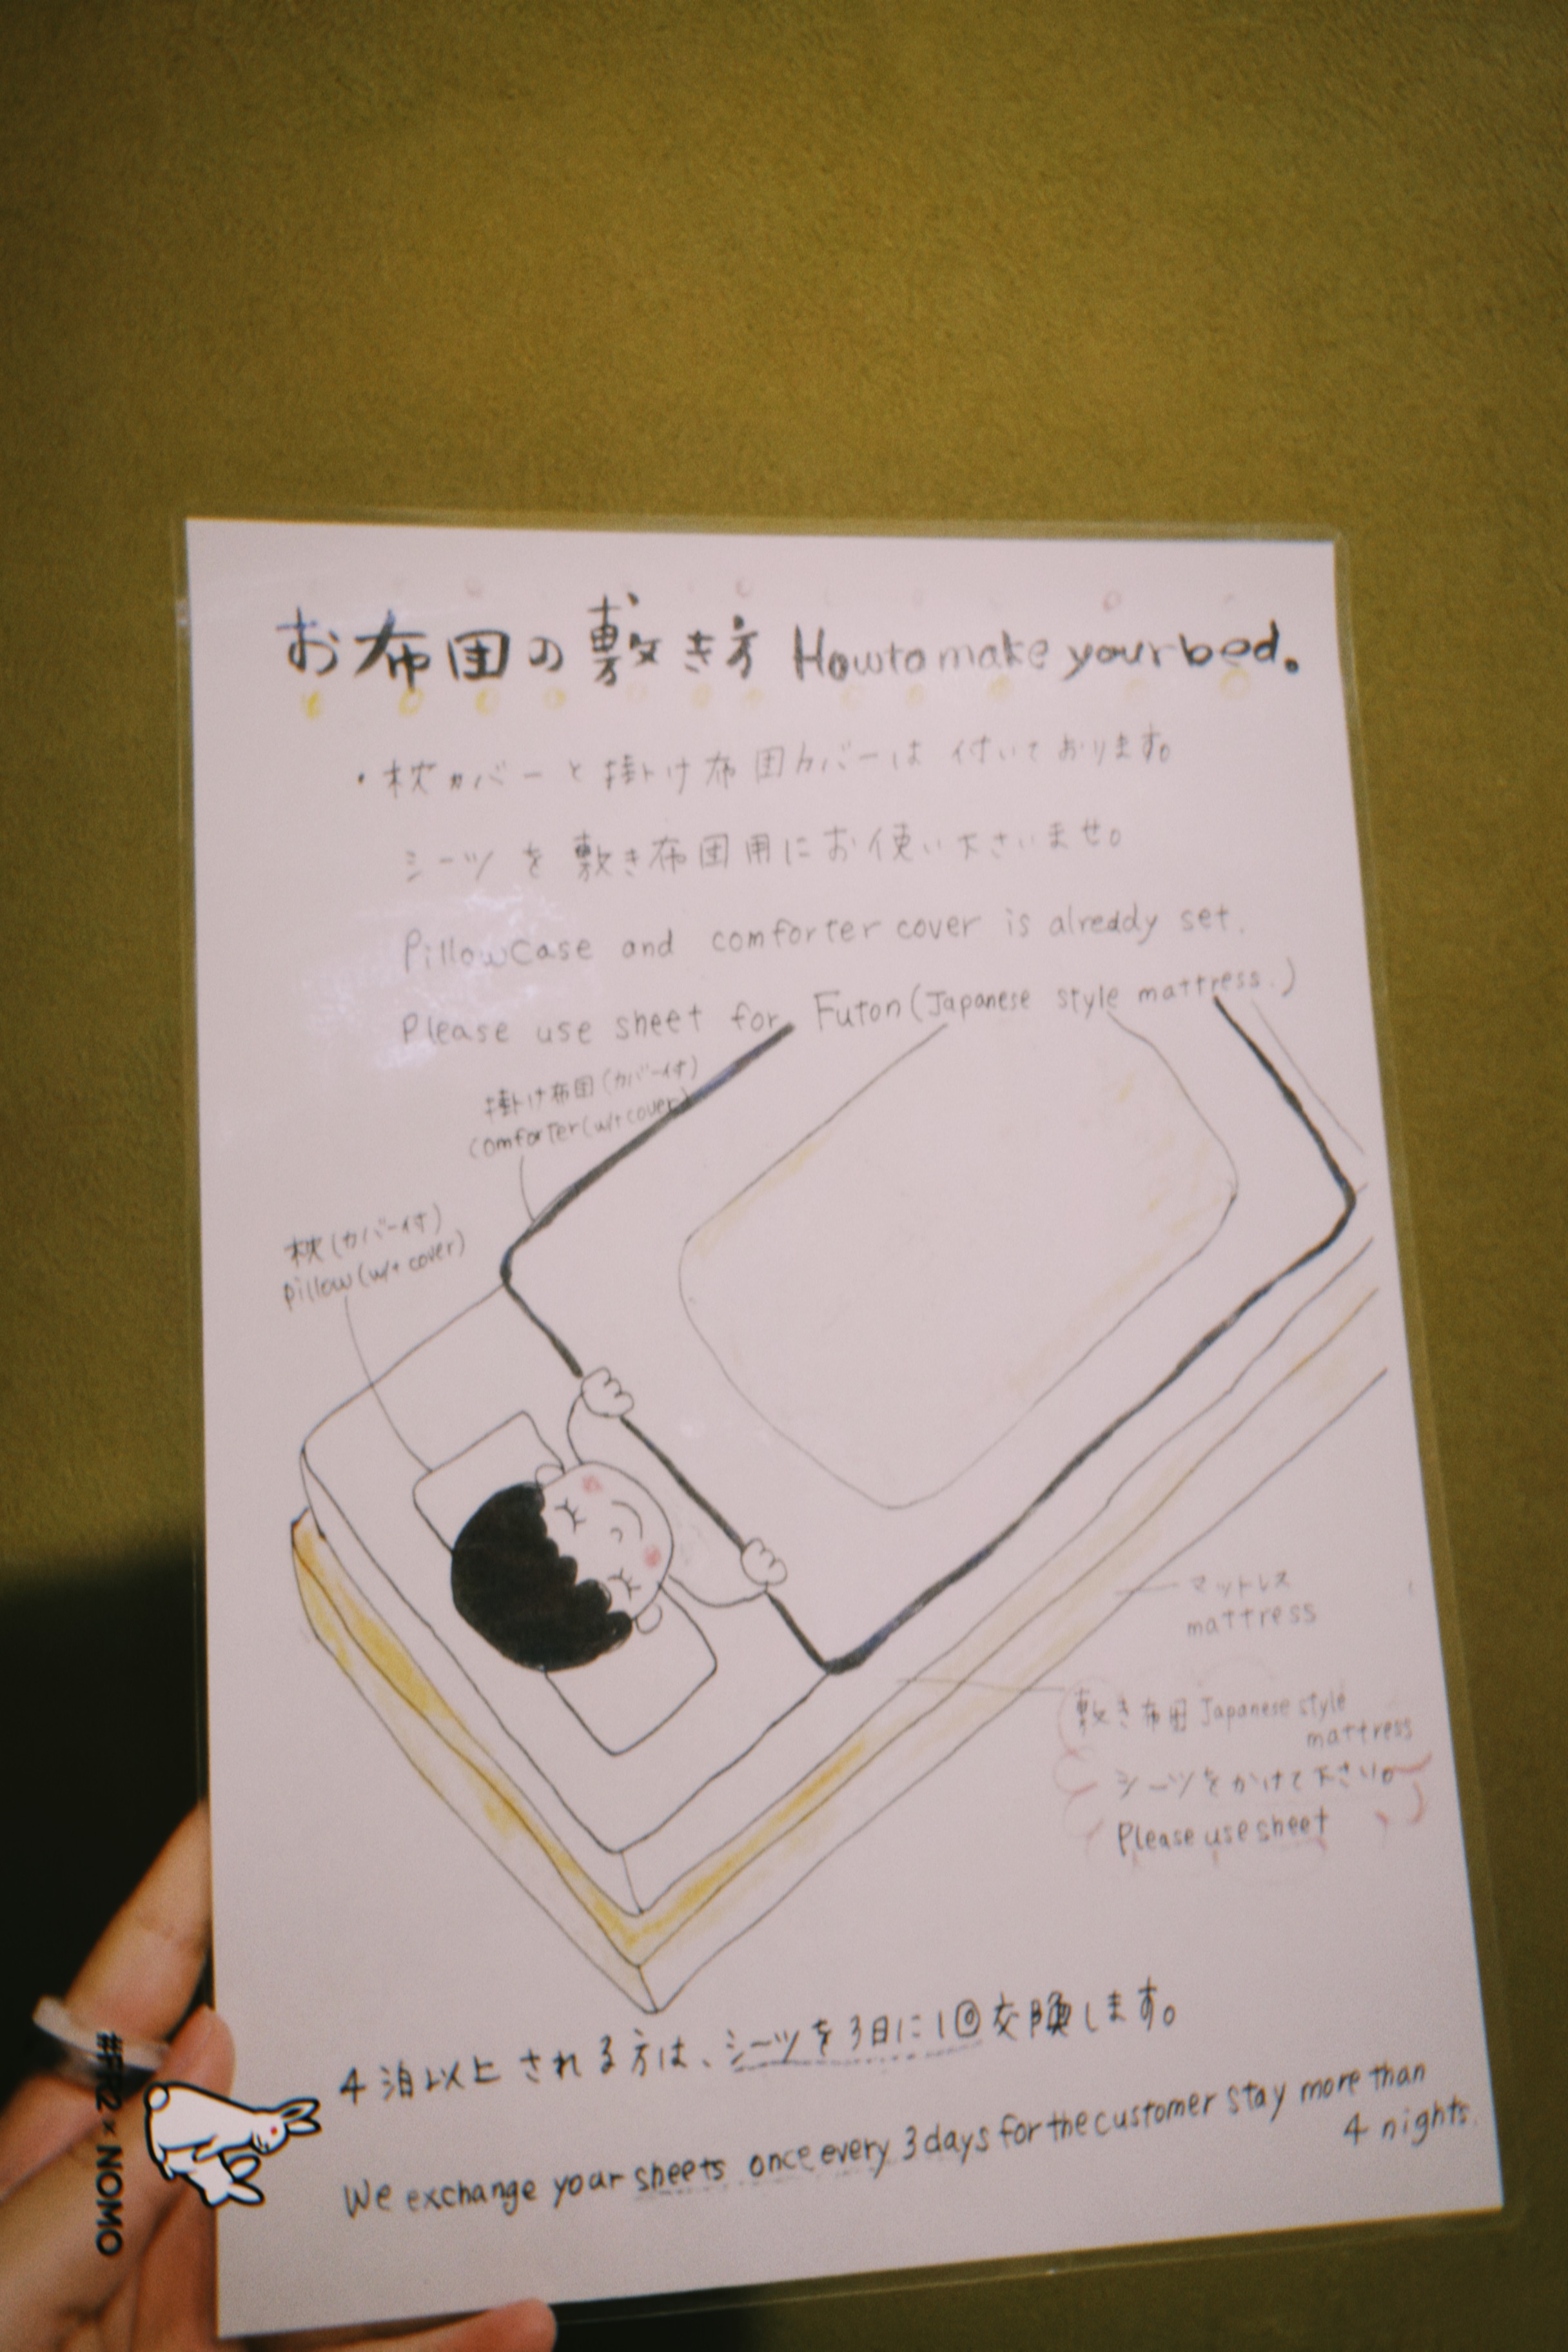 お布団の敷き方 How to make your bed.
・枕カバーと掛け布団カバーは付いております。
シーツを敷き布団用にお使い下さいませ。
Pillowcase and comforter cover is already set.
Please use sheet for Futon (Japanese style mattress.)
掛け布団(カバー付)
comforter (w/t cover)
枕(カバー付)
pillow (w/t cover)
マットレス
mattress
敷き布団 Japanese style
mattress
シーツをかけて下さい。
Please use sheet
4泊以上される方は、シーツを3日に1回交換します。
We exchange your sheets once every 3 days for the customer stay more than
4 nights.
#FR2 × NOMO